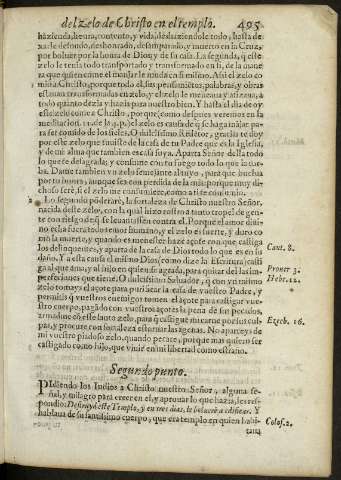 del zelo de Christo en el templo. 495
hazienda, honra, contento, y vida, deshaziendole todo, hasta de-
xarle desnudo, deshonrado, desamparado, y muerto en la Cruz,
por boluer por la honra de Dios y de su casa. La segunda, q̃ este
zelo le tenia todo transportado y transformado en si, de la mane
ra que quien come el manjar le muda en si mismo. Assi el zelo co
mia a Christo, porque todo el, sus pensamiẽtos, palabras, y obras
estauan transformadas en zelo, y el zelo le meneaua y
todo quanto dezia y hazia para nuestro bien. Y hasta el dia de oy
este zelo come a Christo, porque, como despues veremos en la
ra ser comido de los fieles. O dulcissimo Redẽtor, gracias te doy
por este zelo que tuuiste de la casa de tu Padre que es la Iglesia,
y de mi alma que tambien es casa suya. Aparta Señor della todo
lo que te desagrada; y consume con tu fuego todo lo que te
ba. Dame tambien vn zelo semejante al tuyo, para que buelua
por tu honra, aunque sea con perdida de la mia: porque muy di-
choso serè, si el zelo me comiere, como a ti te comia.
Lo segundo põderarè, la fortaleza de Christo nuestro Señor,
nacida deste zelo, con la qual hizo rostro a tanto tropel de gen-
te con riesgo de q̃ se leuantassen contra el. Porque el amor diui-
no echa fuera todo temor humano, y el zelo es fuerte, y duro co
mo la muerte, y quando es menester haze açote con que castiga
los delinquentes, y aparta de la casa de Dios todo lo que es en su
daño. Y a esta causa el mismo Dios, como dize la Escritura, casti
ga al que ama, y al hijo en quien se agrada, para quitar del las im-
perfecciones que tiene. O dulcissimo Saluador, q̃ con vn mismo
zelo tomays el açote para purificar la casa de vuestro Padre, y
permitis q̃ vuestros enemigos tomen el açote para castigar vue
stro cuerpo, pagãdo con vuestros açotes la pena de mis pecados,
armadme con este santo zelo, para q̃ castigue mi carne por sus cul-
pas, y procure con fortaleza estoruar las agenas. No aparteys de
mi vuestro piadoso zelo, quando pecare, porque mas quiero ser
castigado como hijo, que viuir en mi libertad como estraño.
Cant. 8.
Prouer 3.
Hebr. 12.
Ezech. 16.
Segundo punto.
Pidiendo los Iudios a Christo nuestro Señor, alguna se-
ñal, y milagro para creer en el, y aprouar lo que hazia, les res-
pondio: Destruyd este Templo, y en tres dias, le boluerè a edificar. Y
hablaua de su santissimo cuerpo, que era templo en quien habi-
Colos. 2.
taua